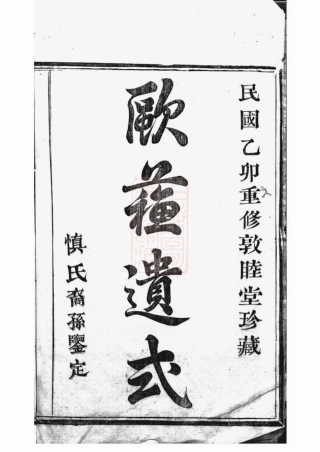 民國乙卯重修敦睦堂珍藏
歐蘇遺式
慎氏裔孫鑒定